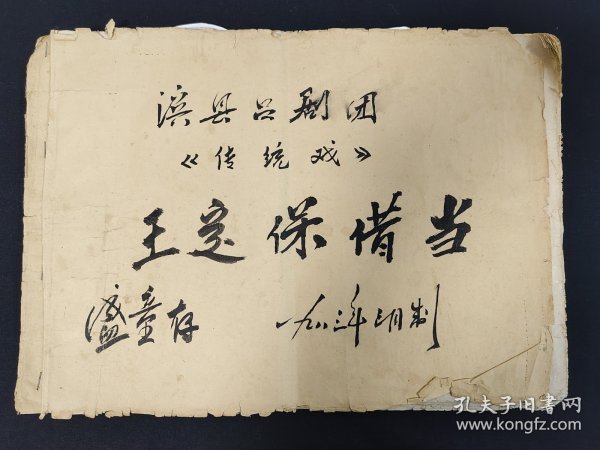 滨县吕剧团
《传统戏》
王定保借当
童存 一九八三年三月制
孔夫子旧书网
www.kongfz.com